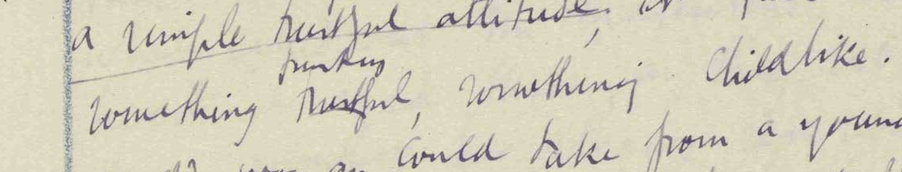 a simple trustful attitude,
trusting
something trustful, something childlike.
could take from a young